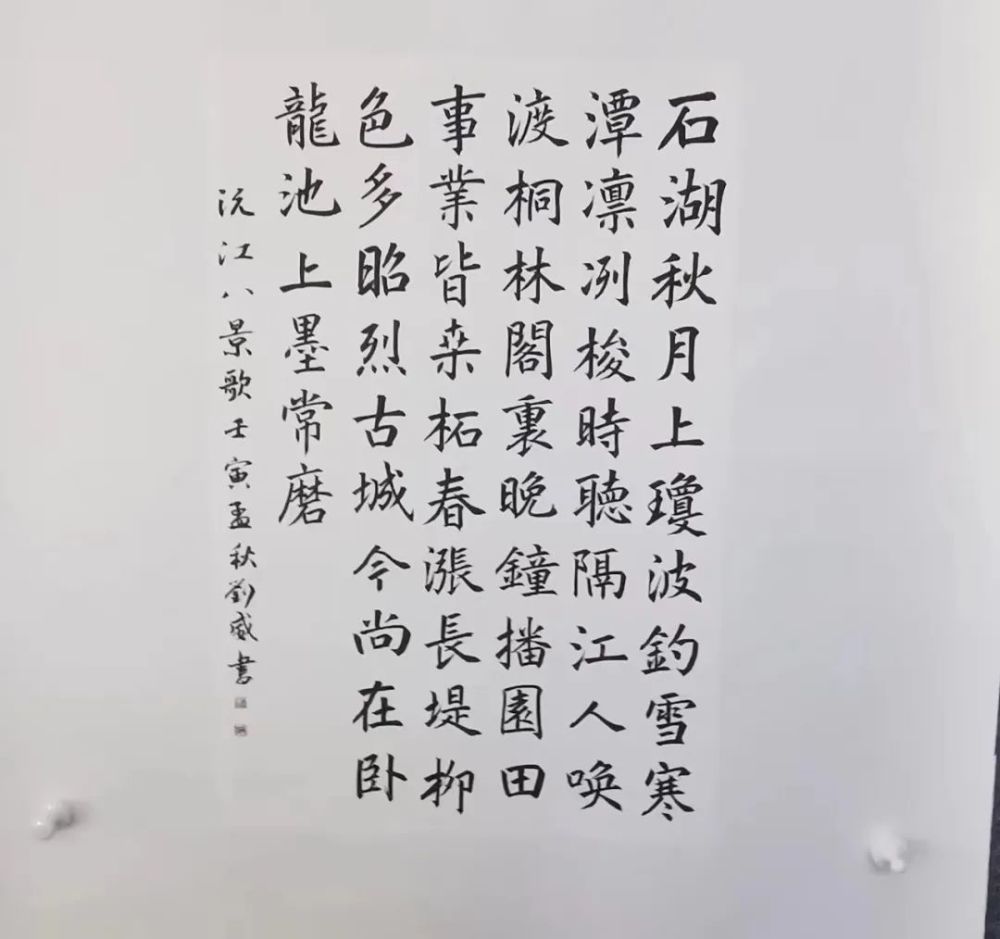 石湖秋月上瓊波釣雪寒
潭凛冽梭時聴隔江人唤
渡桐林閣裏晚鐘播園田
事業皆桒柘春漲長堤柳
色多昭烈古城今尚在卧
龍池上墨常磨
沅江八景歌壬寅孟秋劉威書